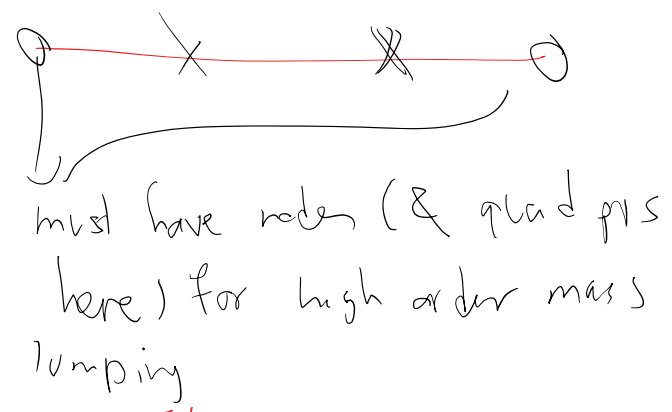 must have nodes (& quad pts
here) for high order mass
lumping